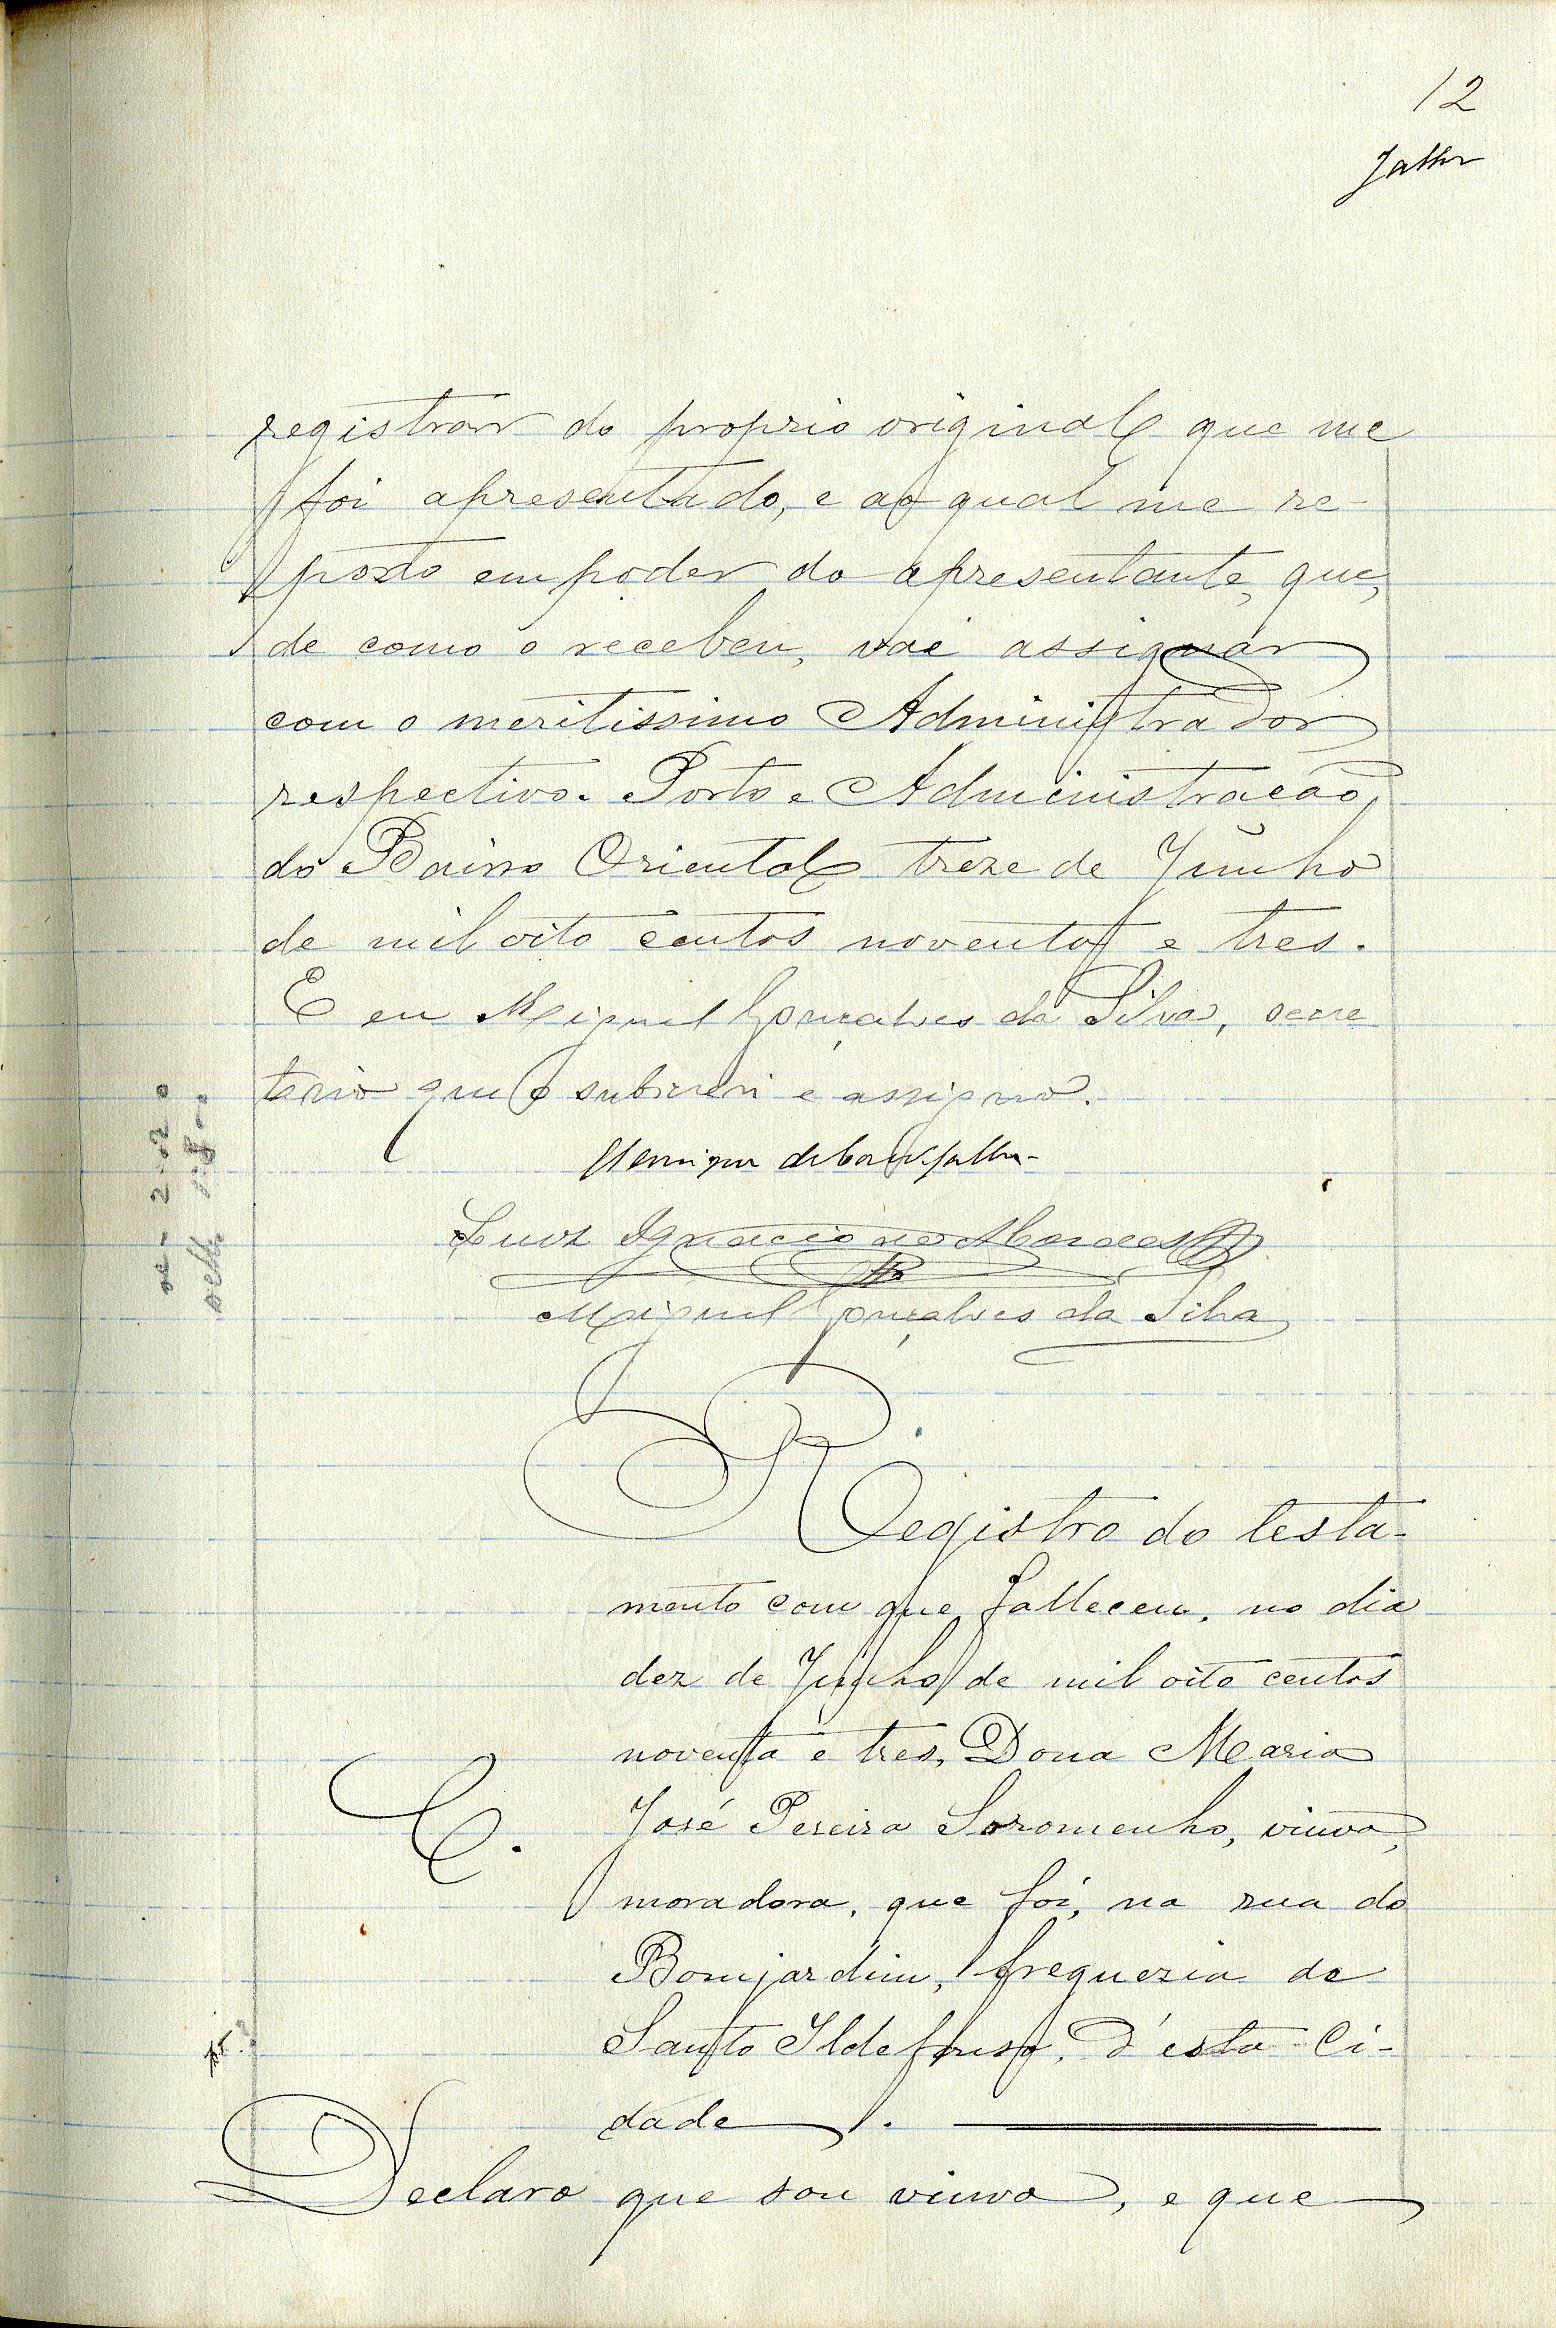 12
registrar do proprio original que me
foi apresentado, e ao qual me re-
porto em poder do apresentante, que,
de como o recebeu, vae assignar
com o meritissimo Administrador
respectivo. Porto e Administração
do Bairro Oriental treze de Junho
de mil oito centos noventa e tres.
E eu Miguel Gonçalves da Silva, secre
tario que o subscrevi e assigno.
Henrique de
Luiz Ignacio
Miguel Gonçalves da Silva
Registro do testa-
mento com que falleceu, no dia
dez de Junho de mil oito centos
noventa e tres, Dona Maria
José Pereira Soromenho, viuva,
moradora, que foi, na rua do
Bomjardim, freguezia de
Santo Ildefonso, d'esta Ci-
dade.
Declaro que sou viuva, e que